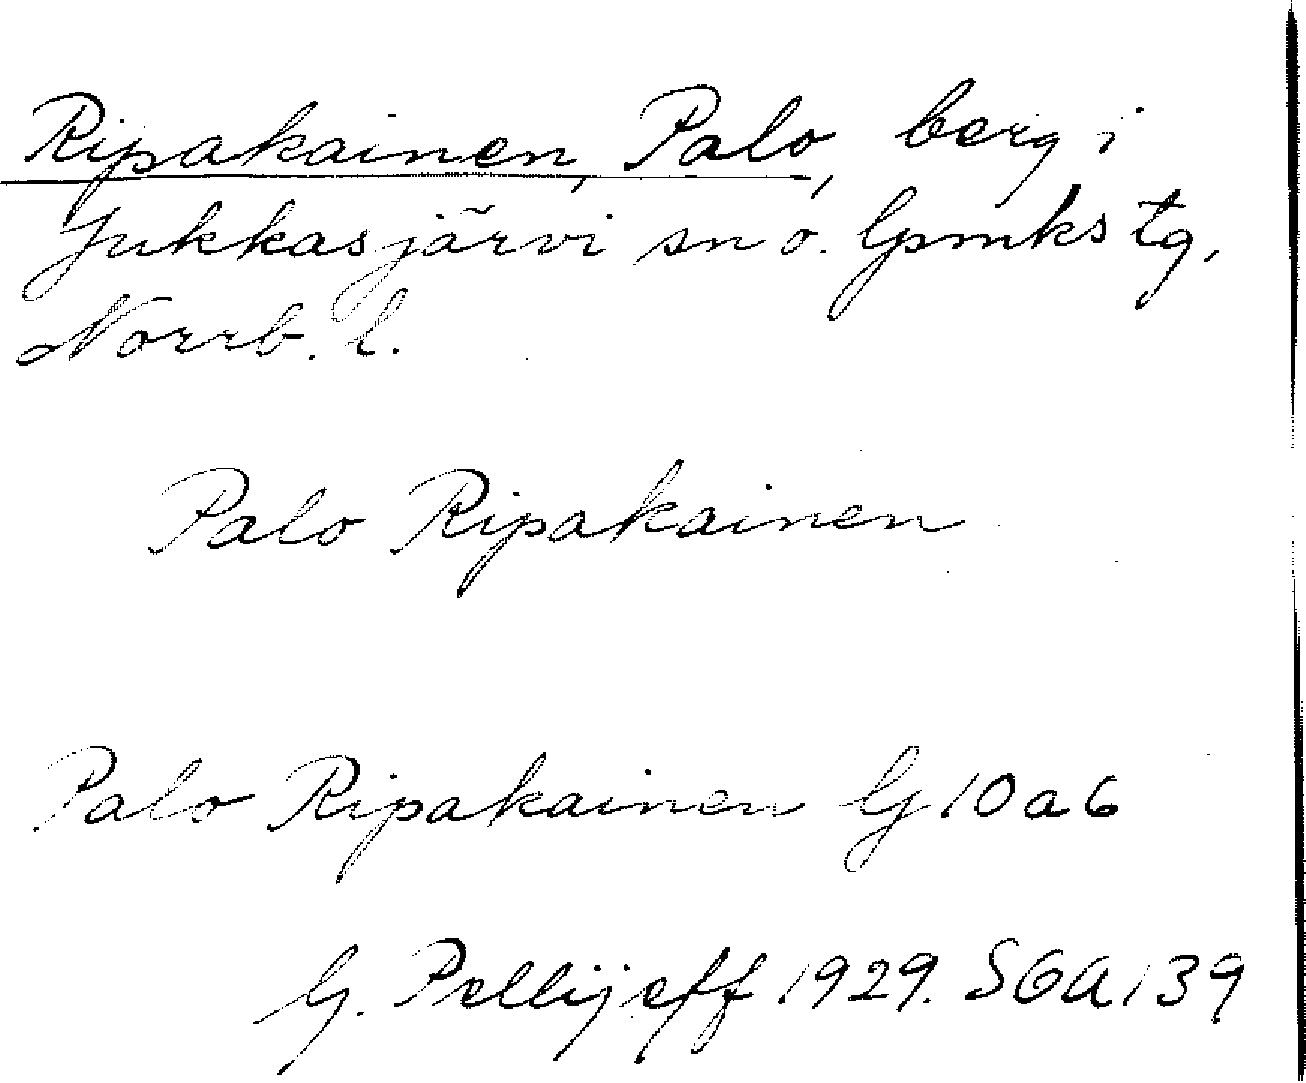 Ripakainen, Palo, berg i
Jukkasjärvi sn o. lpmkstg,
Norrb. l.
Palo Ripakainen
Palo Ripakainen G 10 a 6
G. Pellijeff 1929. SOA 139